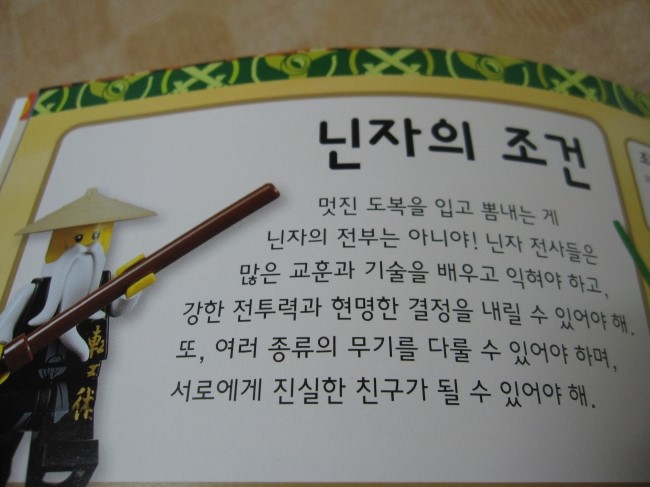 닌자의 조건
멋진 도복을 입고 뽐내는 게
닌자의 전부는 아니야! 닌자 전사들은
많은 교훈과 기술을 배우고 익혀야 하고,
강한 전투력과 현명한 결정을 내릴 수 있어야 해.
또, 여러 종류의 무기를 다룰 수 있어야 하며,
서로에게 진실한 친구가 될 수 있어야 해.